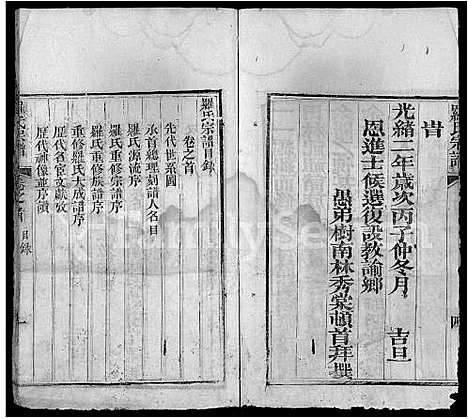 時
光緒二年歲次丙子仲冬月 吉旦
恩進士候選復設教諭鄉
愚弟樹南林秀棠頓首拜撰
羅氏宗譜目錄
卷之首
先代世系圖
承首總理刻譜人名目
羅氏源流序
羅氏重修宗譜序
羅氏重修族譜序
重修羅氏大成譜序
歷代名宦文獻攷
歷代神像並序讚
羅氏宗譜
卷之首
目錄
一
FamilySearch